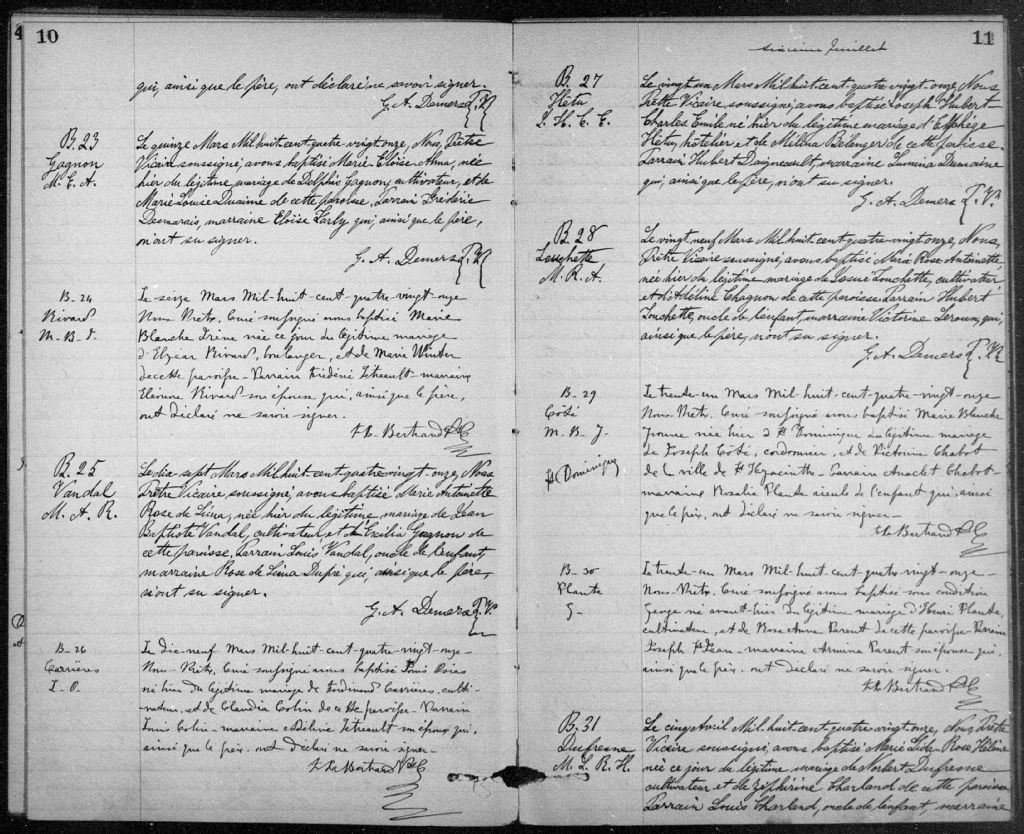 10
qui, ainsi que le père, ont déclaré ne savoir signer.
G. A. Demers P. V.
B. 23
Gagnon
M. E. A.
Le quinze Mars Mil huit-cent-quatre-vingt-onze, Nous, Prêtre
Vicaire soussigné, avons baptisé Marie Eloïse Anna, née
hier du légitime mariage de Delphis Gagnon, cultivateur, et de
Marie-Louise de cette paroisse, Parrain Fréderic
Desmarais, marraine Eloïse qui, ainsi que le père,
n'ont su signer.
G. A. Demers P. V.
B-24
Rivard
M-B-I-
Le seize Mars Mil-huit-cent-quatre-vingt-onze
Nous Prêtre, Curé soussigné avons baptisé Marie
Blanche Irène née ce jour du légitime mariage
d'Elzear Rivard, boulanger, et de Marie Winter
de cette paroisse - Parrain Frédéric Tétreault - marraine
Eleonore Rivard son épouse qui, ainsi que le père,
ont déclaré ne savoir signer.
Bertrand Ptre C
B. 25
Vandal
M. A. R.
Le dix-sept Mars Mil huit-cent-quatre-vingt-onze, Nous,
Prêtre Vicaire, soussigné, avons baptisé Marie Antoinette
Rose de Lima, née hier du légitime mariage de Jean
Baptiste Vandal, cultivateur, et d'Exilia Gagnon de
cette paroisse, Parrain Louis Vandal, oncle de l'enfant,
marraine Rose de Lima Dupré qui, ainsi que le père,
n'ont su signer.
G. A. Demers P. V.
B-26
Carrières
L-O-
Le dix-neuf Mars Mil-huit-cent-quatre-vingt-onze-
Nous Prêtre, Curé soussigné avons baptisé Louis Osias
né hier du légitime mariage de Ferdinand Carrières, culti-
vateur, et de Claudia Colin de cette paroisse - Parrain
Louis Colin - marraine Tétreault son épouse qui,
ainsi que le père, ont déclaré ne savoir signer-
Bertrand Ptre C
11
sixième feuillet
B. 27
Hétu
J. H. C. E.
Le vingt-un Mars Mil huit-cent-quatre-vingt-onze, Nous
Prêtre Vicaire soussigné, avons baptisé Joseph Hubert
Charles Emile né hier du légitime mariage d'Elphège
Hétu, hôtelier et de Mélina Bélanger de cette paroisse.
Parrain Hubert Daigneault, marraine Lumina
qui, ainsi que le père, n'ont su signer.
G. A. Demers P. V.
B. 28
Touchette
M. R. A.
Le vingt neuf Mars Mil huit-cent-quatre-vingt-onze, Nous,
Prêtre Vicaire soussigné, avons baptisé Marie Rose Antoinette
née hier du légitime mariage de Josué Touchette, cultivateur
et d'Adéline Chagnon de cette paroisse Parrain Hubert
Touchette, oncle de l'enfant, marraine Victorine Leroux, qui,
ainsi que le père, n'ont su signer.
G. A. Demers P. V.
B-29
Côté
M-B-J-
St Dominique
Le trente-un Mars Mil-huit-cent-quatre-vingt-onze
Nous Prêtre, Curé soussigné avons baptisé Marie Blanche
née hier à St Dominique du légitime mariage
de Joseph Côté, cordonnier, et de Victorine Chabot
de la ville de St Hyacinthe - Parrain Anaclet Chabot -
marraine Rosalie Plante aieule de l'enfant qui, ainsi
que le père, ont déclaré ne savoir signer-
Bertrand Ptre C
B-30
Plante
G-
Le trente-un Mars Mil-huit-cent-quatre-vingt-onze-
Nous Prêtre, Curé soussigné avons baptisé sous condition
George né avant-hier du légitime mariage d'Henri Plante,
cultivateur, et de Rose Anna Parent de cette paroisse - Parrain
Joseph St Jean - marraine Parent son épouse qui,
ainsi que le père, ont déclaré ne savoir signer.
Bertrand Ptre C
B. 31
Dufresne
M. L. R. H.
Le cinq Avril Mil-huit-cent-quatre-vingt-onze, Nous, Prêtre
Vicaire soussigné, avons baptisé Marie Rose Hélène
née ce jour du légitime mariage de Norbert Dufresne
cultivateur et de Zéphirine Charland de cette paroisse
Parrain Louis Charland, oncle de l'enfant, marraine